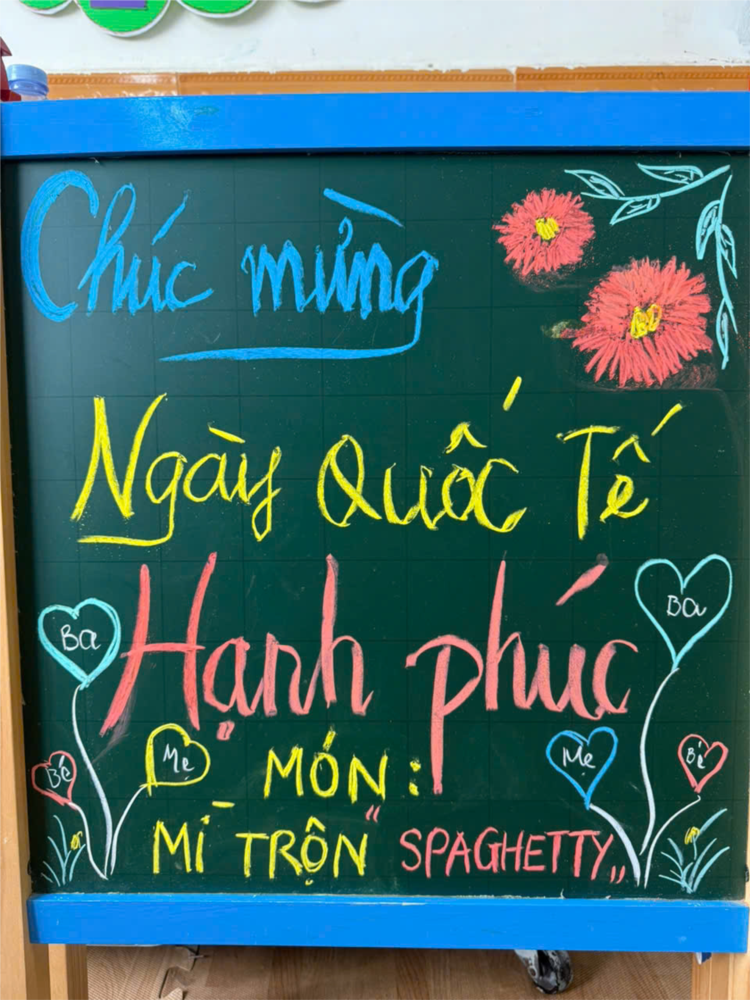 Chúc mừng
Ngày Quốc Tế
Hạnh phúc
Ba
Bé
Mẹ
Ba
Mẹ
Bé
MÓN:
MÌ TRỘN "SPAGHETTY"